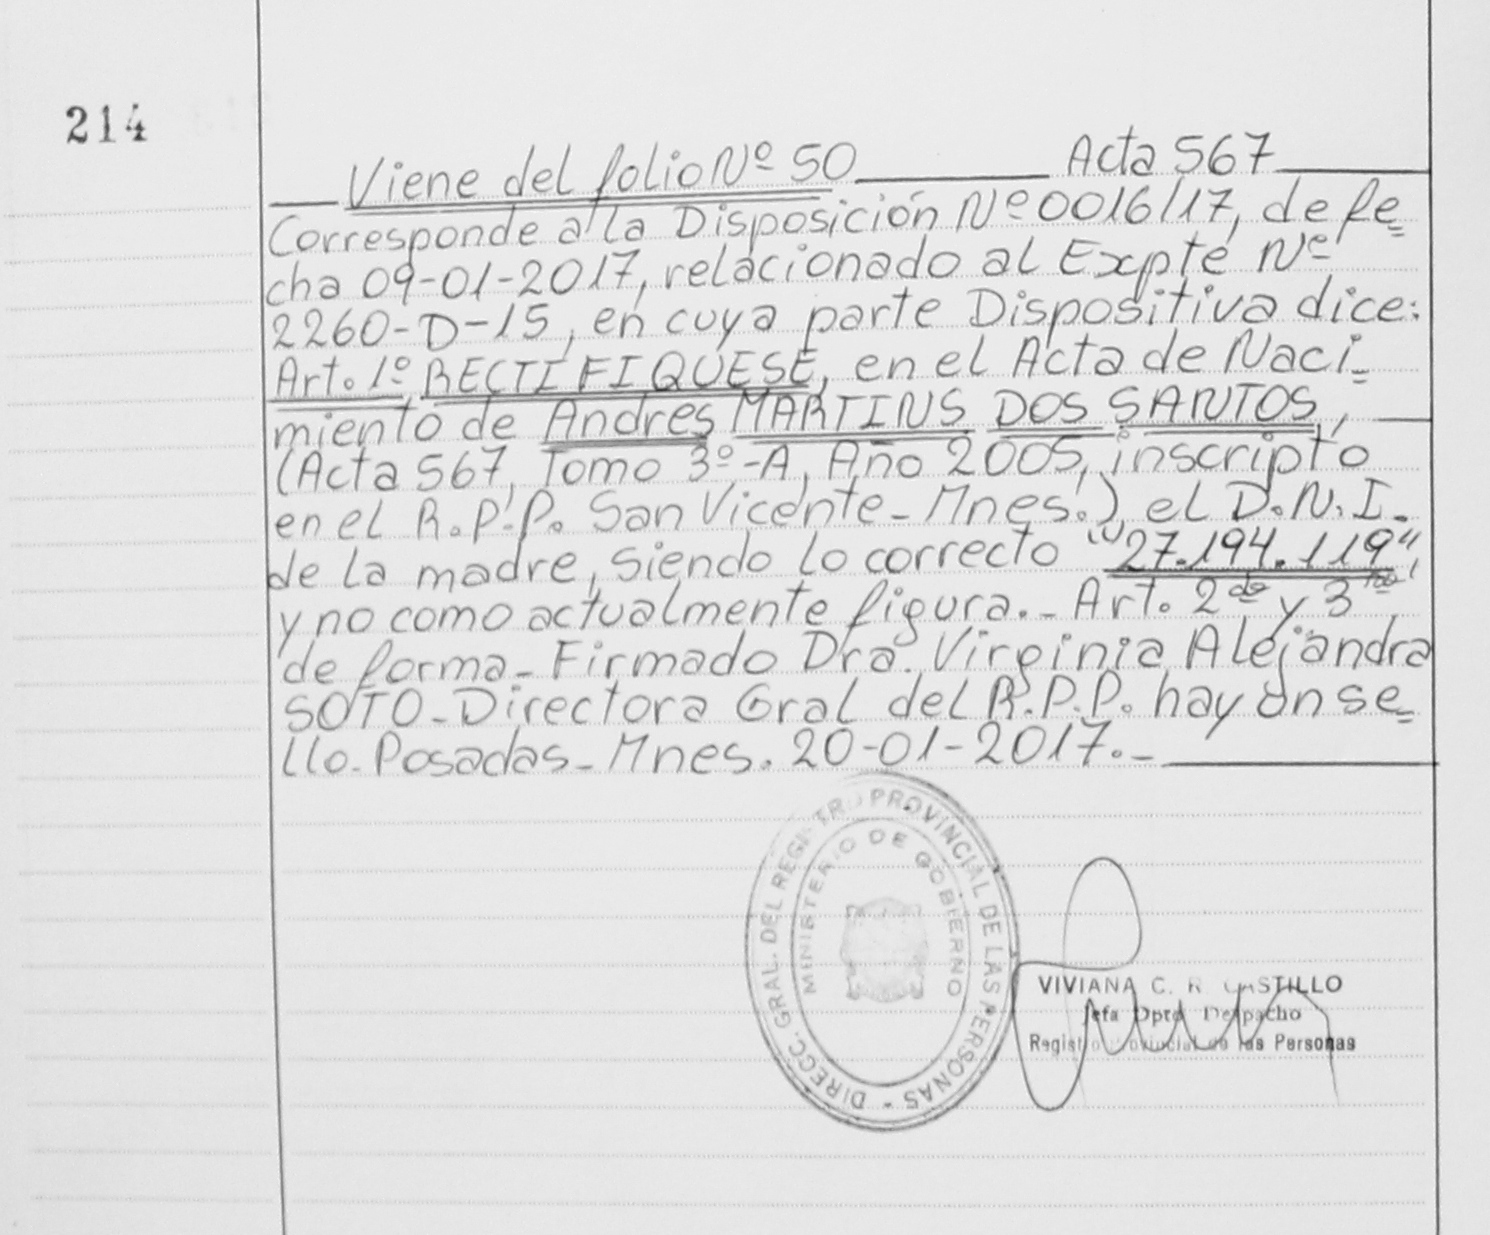 214
Viene del folio Nº 50 Acta 567
Corresponde a la Disposición Nº 0016/17, de fe
cha 09-01-2017, relacionado al Expte Nº
2260-D-15, en cuya parte Dispositiva dice:
Art. 1º RECTIFIQUESE, en el Acta de Naci
miento de Andres MARTINS DOS SANTOS,
(Acta 567, Tomo 3º-A, Año 2005, inscripto
en el R.P.P. San Vicente - Mnes.), el D.N.I.
de la madre, siendo lo correcto "27.194.119",
y no como actualmente figura.- Art. 2do y 3ro
de forma - Firmado Dra. Virginia Alejandra
SOTO - Directora Gral del R.P.P. hay un se
llo. Posadas - Mnes. 20-01-2017.-
DIRECC. GRAL. DEL REGISTRO PROVINCIAL DE LAS PERSONAS -
MINISTERIO DE GOBIERNO
VIVIANA C. R. CASTILLO
Jefa Dpto Despacho
Registro Provincial de las Personas